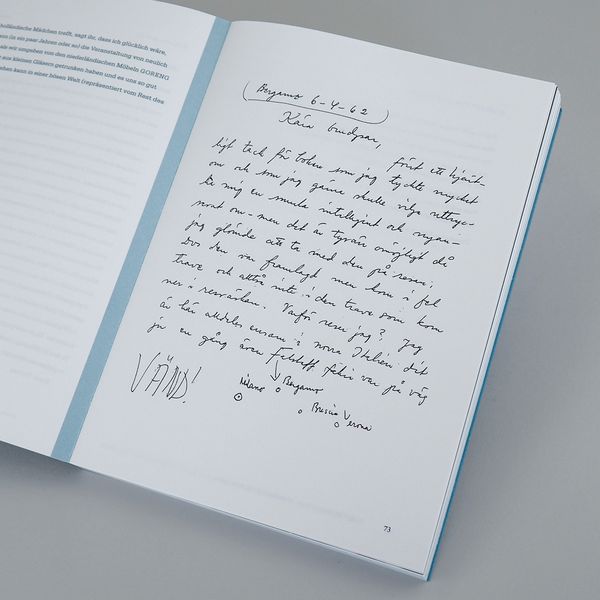 holländische Mädchen trefft, sagt ihr, dass ich glücklich wäre,
(ist ein paar Jahren oder so) die Veranstaltung von neulich
als wir umgeben von den niederländischen Möbeln GORENG
aus kleinen Gläsern getrunken haben und es uns so gut
gehen kann in einer bösen Welt (repräsentiert vom Rest des
(Bergamo 6-4-62)
Kära gudspar,
först ett hjärt-
ligt tack för boken som jag tyckte mycket
om och som jag gärna skulle vilja uttryc-
ka mig en smula intelligent och nyan-
serat om - men det är tyvärr omöjligt då
jag glömde att ta med den på resan;
dvs den var framlagd men kom i fel
trave och alltså inte i den trave som kom
ner i resväskan. Varför reser jag? Jag
är här alldeles ensam i norra Italien dit
ju en gång även Falstaff, fakir var på väg
VÄND!
Milano
Bergamo
Brescia
Verona
73